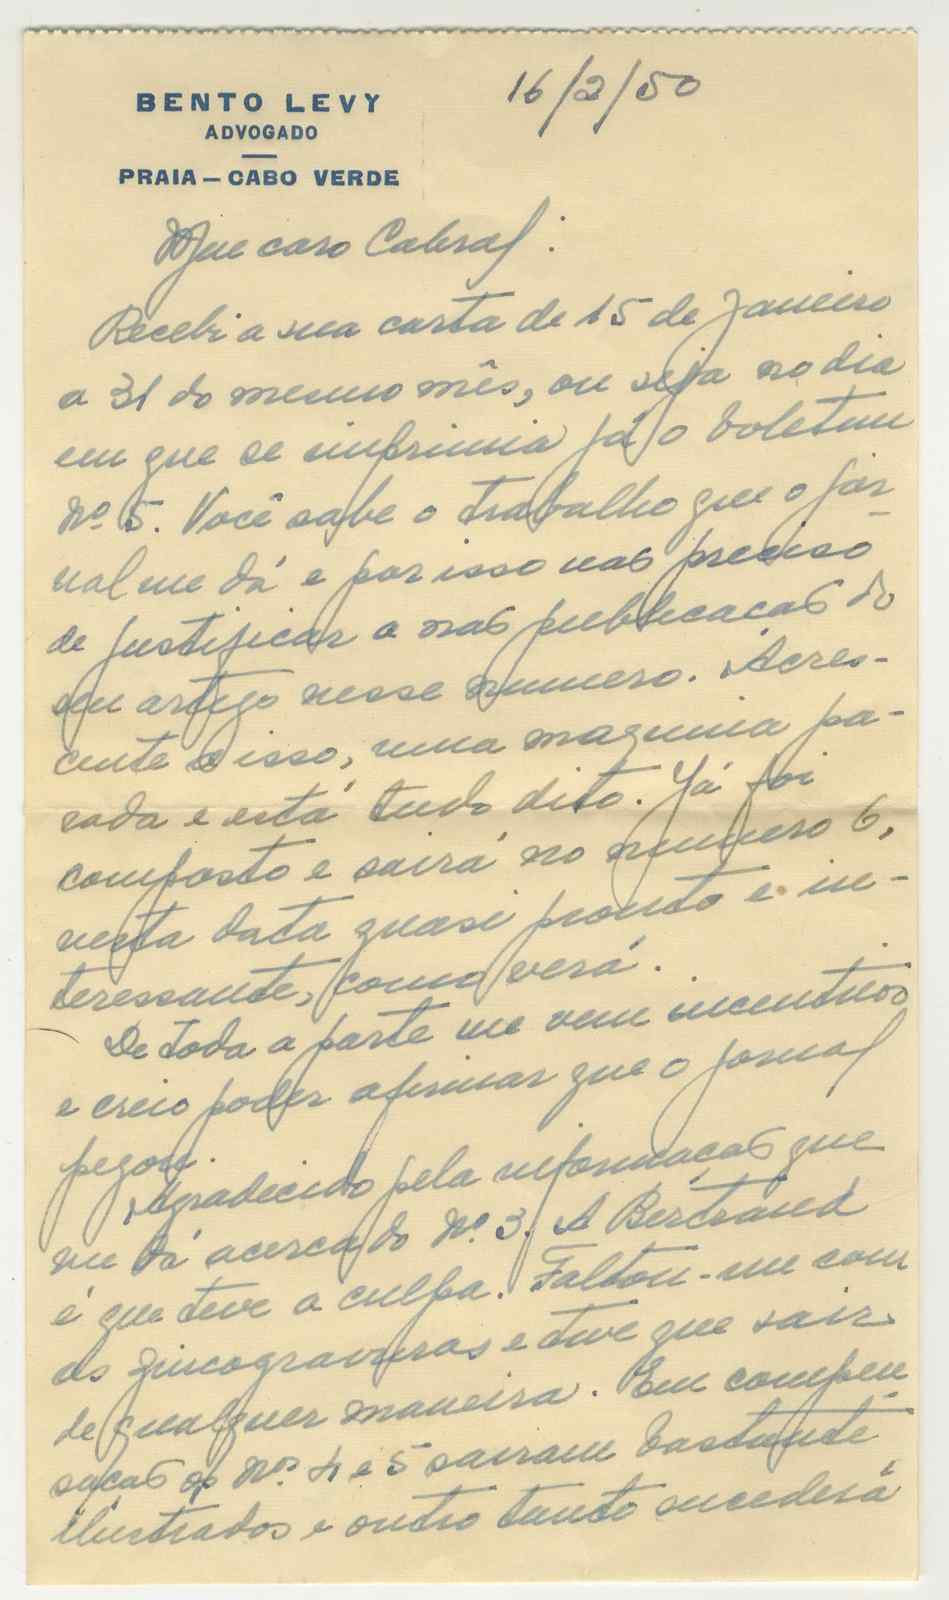 BENTO LEVY
ADVOGADO
PRAIA — CABO VERDE
16/2/50
Meu caro Cabral:
Recebi a sua carta de 15 de Janeiro
a 31 do mesmo mês, ou seja no dia
em que se imprimia já o boletim
Nº 5. Você sabe o trabalho que o jor-
nal me dá e por isso nas preciso
de justificar a nas publicacas do
seu artigo nesse numero. Acres-
cente a isso, uma maquina pa-
rada e está tudo dito. Já foi
composto e sairá no numero 6,
nesta data quasi pronto e in-
teressante, como verá.
De toda a parte me vem incentivos
e creio poder afirmar que o jornal
pegou.
Agradecido pela informaças que
me dá acerca do Nº 3. A Bertrand
é que teve a culpa. Faltou-me com
as zincogravuras e tive que sair
de qualquer maneira. Em compen
saças os Nºs 4 e 5 sairam bastante
ilustrados e outro tanto sucederá